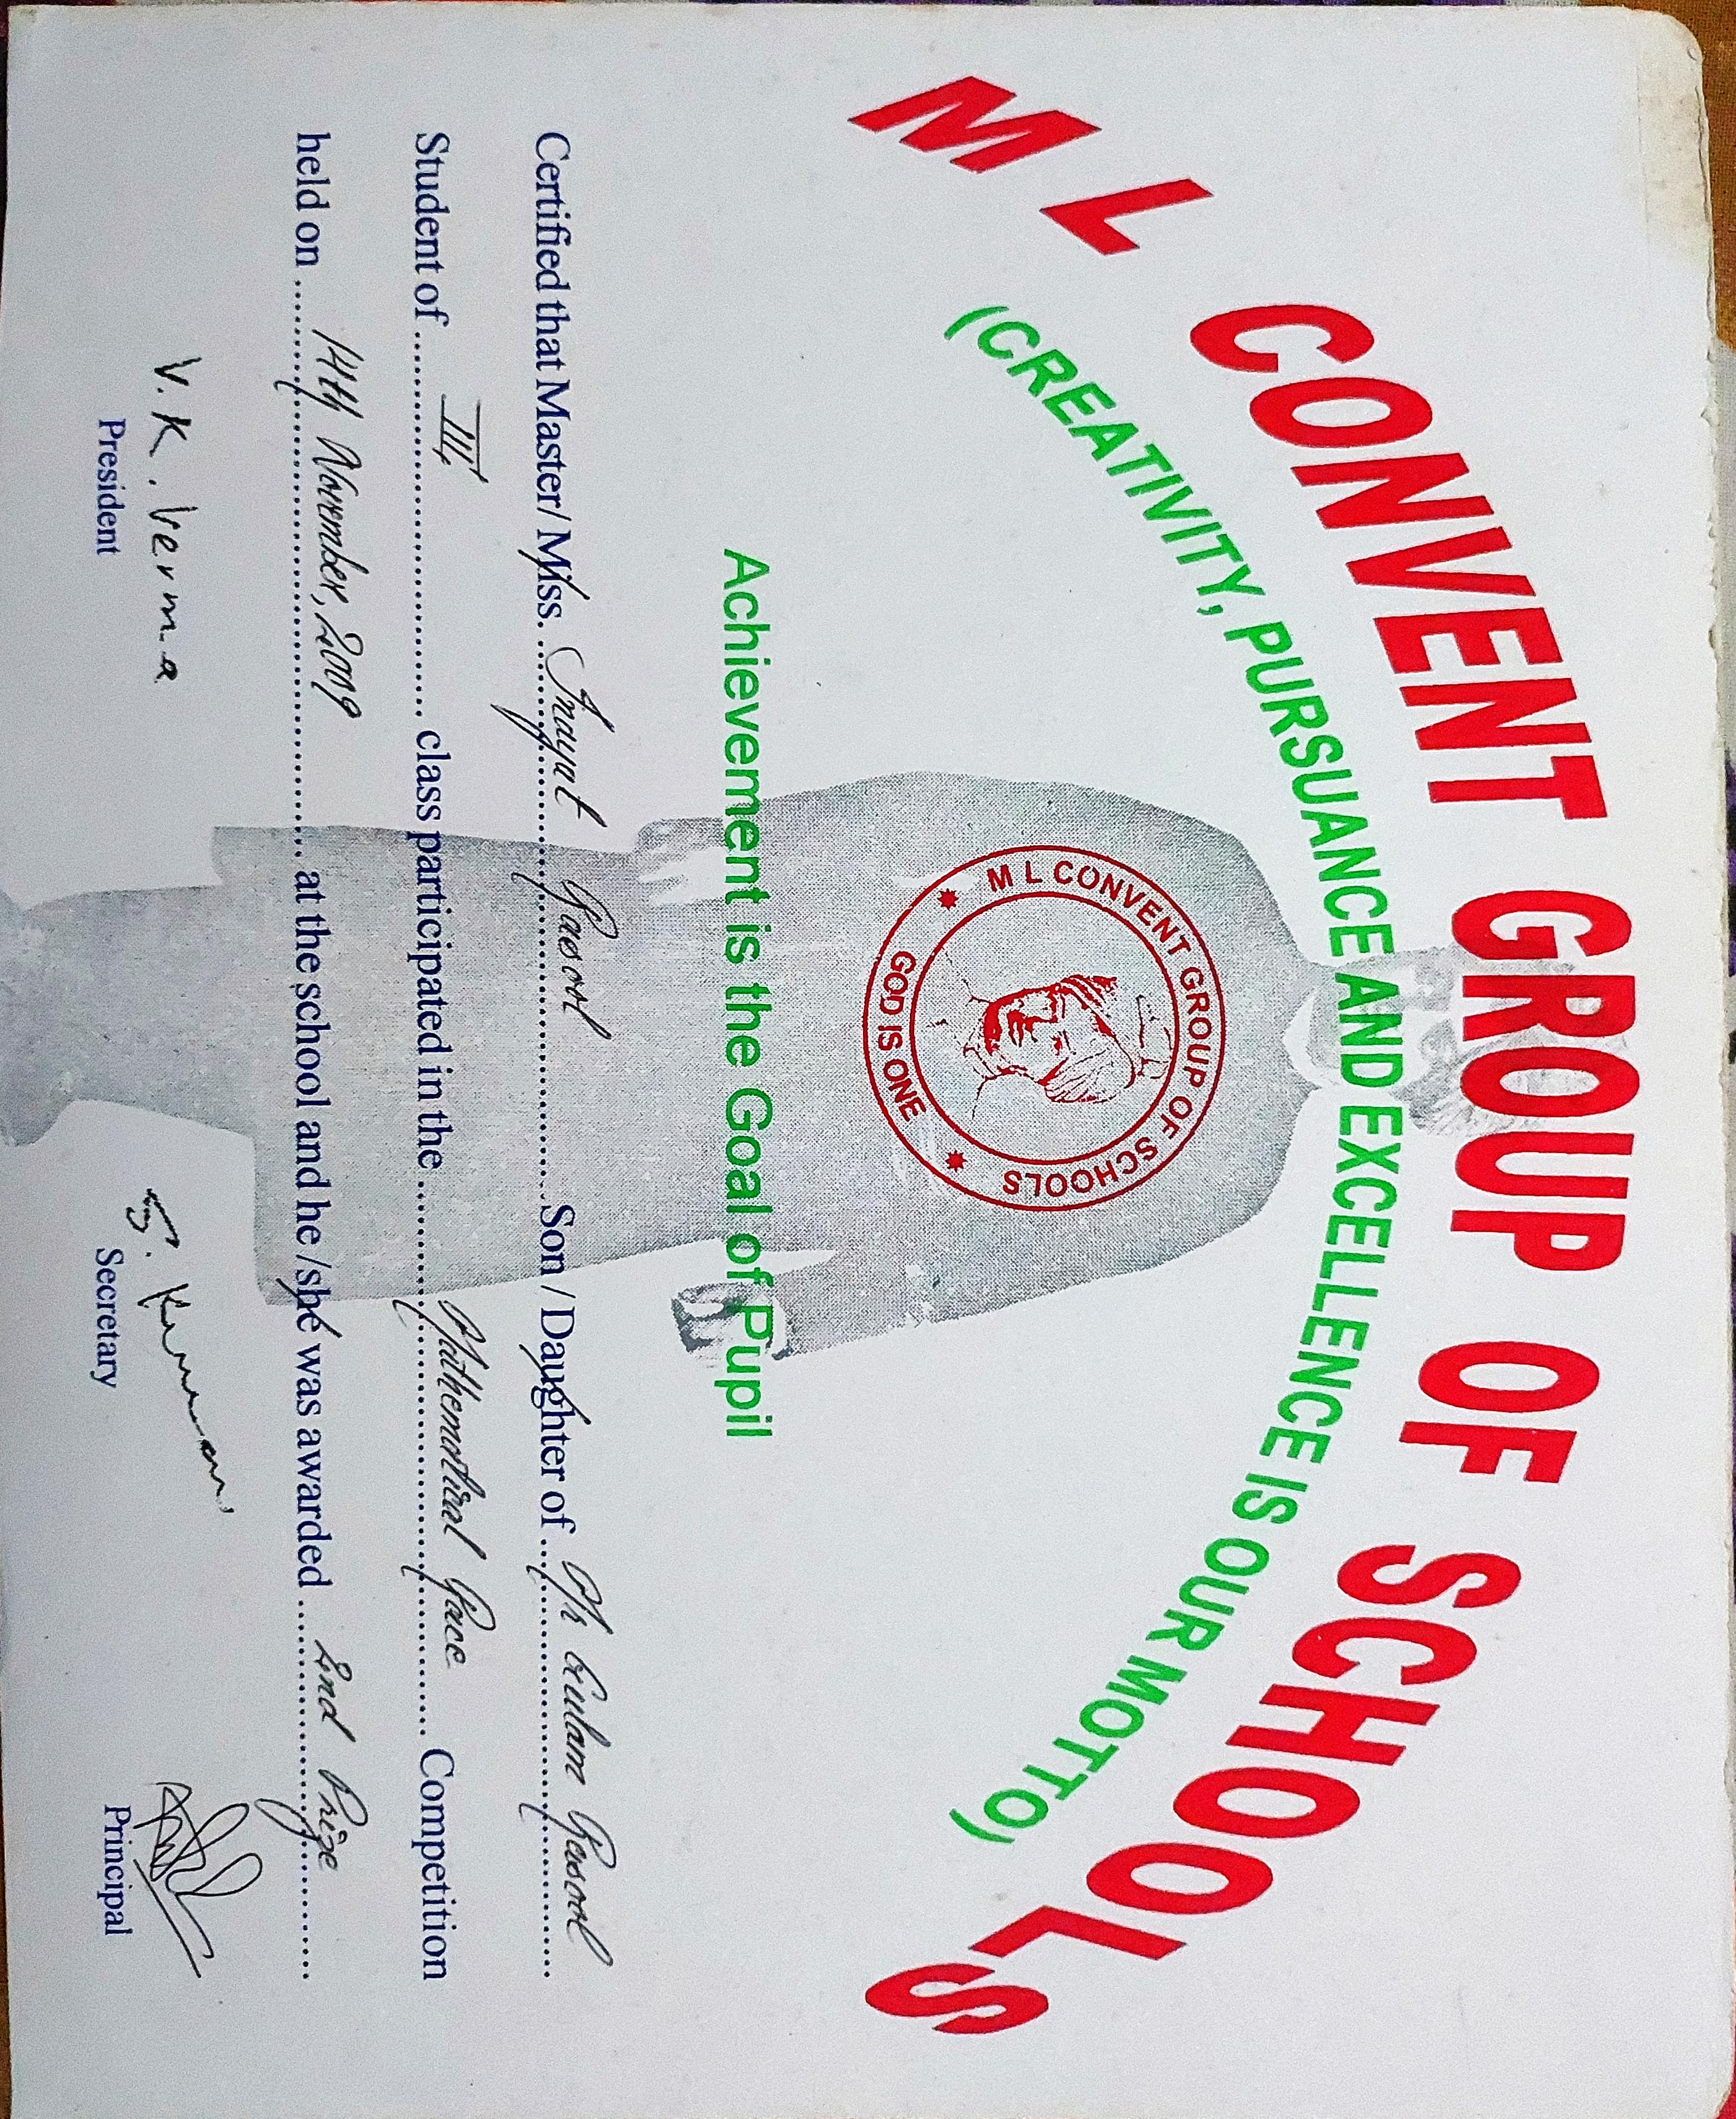 M L CONVENT GROUP OF SCHOOLS
(CREATIVITY, PURSUANCE AND EXCELLENCE IS OUR MOTTO)
M L CONVENT GROUP OF SCHOOLS
GOD IS ONE
Achievement is the Goal of Pupil
Certified that Master/ Miss. Inayat Rasool Son / Daughter of Mr Gulam Rasool
Student of III, class participated in the Mathematical Race Competition
held on 14th November, 2009 at the school and he /she was awarded 2nd Prize
V. K. Verma S. Kumar
President Secretary Principal